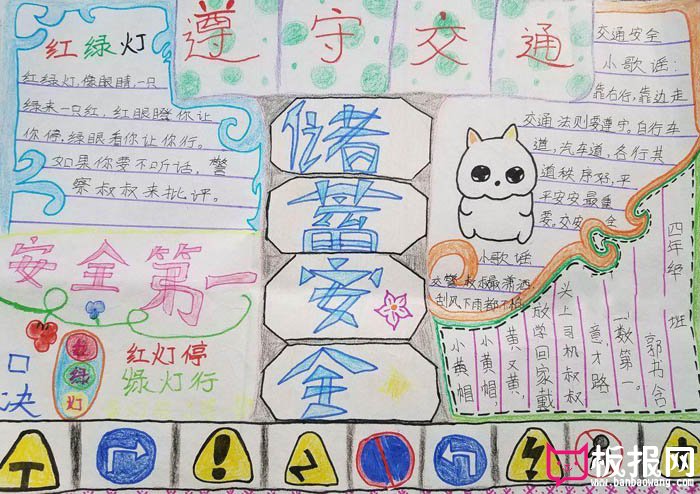 遵守交通
红绿灯
红绿灯,像眼睛,一只
绿来一只红,红眼瞪你让
你停,绿眼看你让你行。
如果你要不听话,警
察叔叔来批评。
安全第一
口决
红
绿
灯
红灯停
绿灯行
储
蓄
安
全
交通安全
小歌谣:
靠右行,靠边走
交通法则要遵守。自行车
道,汽车道,各行其
道秩序好,平
平安安最重
要。交安全
小歌谣
交警叔叔最潇洒
刮风下雨都不怕
四年级 班
郭书含
小黄帽,
小黄帽,
黄又黄,
放学回家戴
头上司机叔叔
意,才路
一数第一。
板报网
www.banbaowang.com